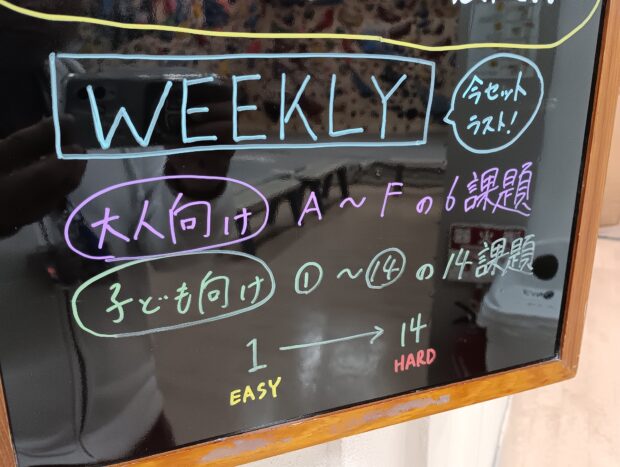 WEEKLY
今セット
ラスト!
大人向け A～Fの6課題
子ども向け ①～⑭の14課題
1 → 14
EASY HARD